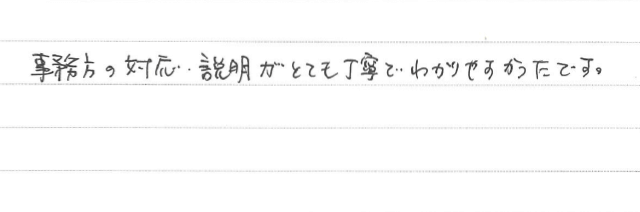 事務方の対応・説明がとても丁寧でわかりやすかったです。